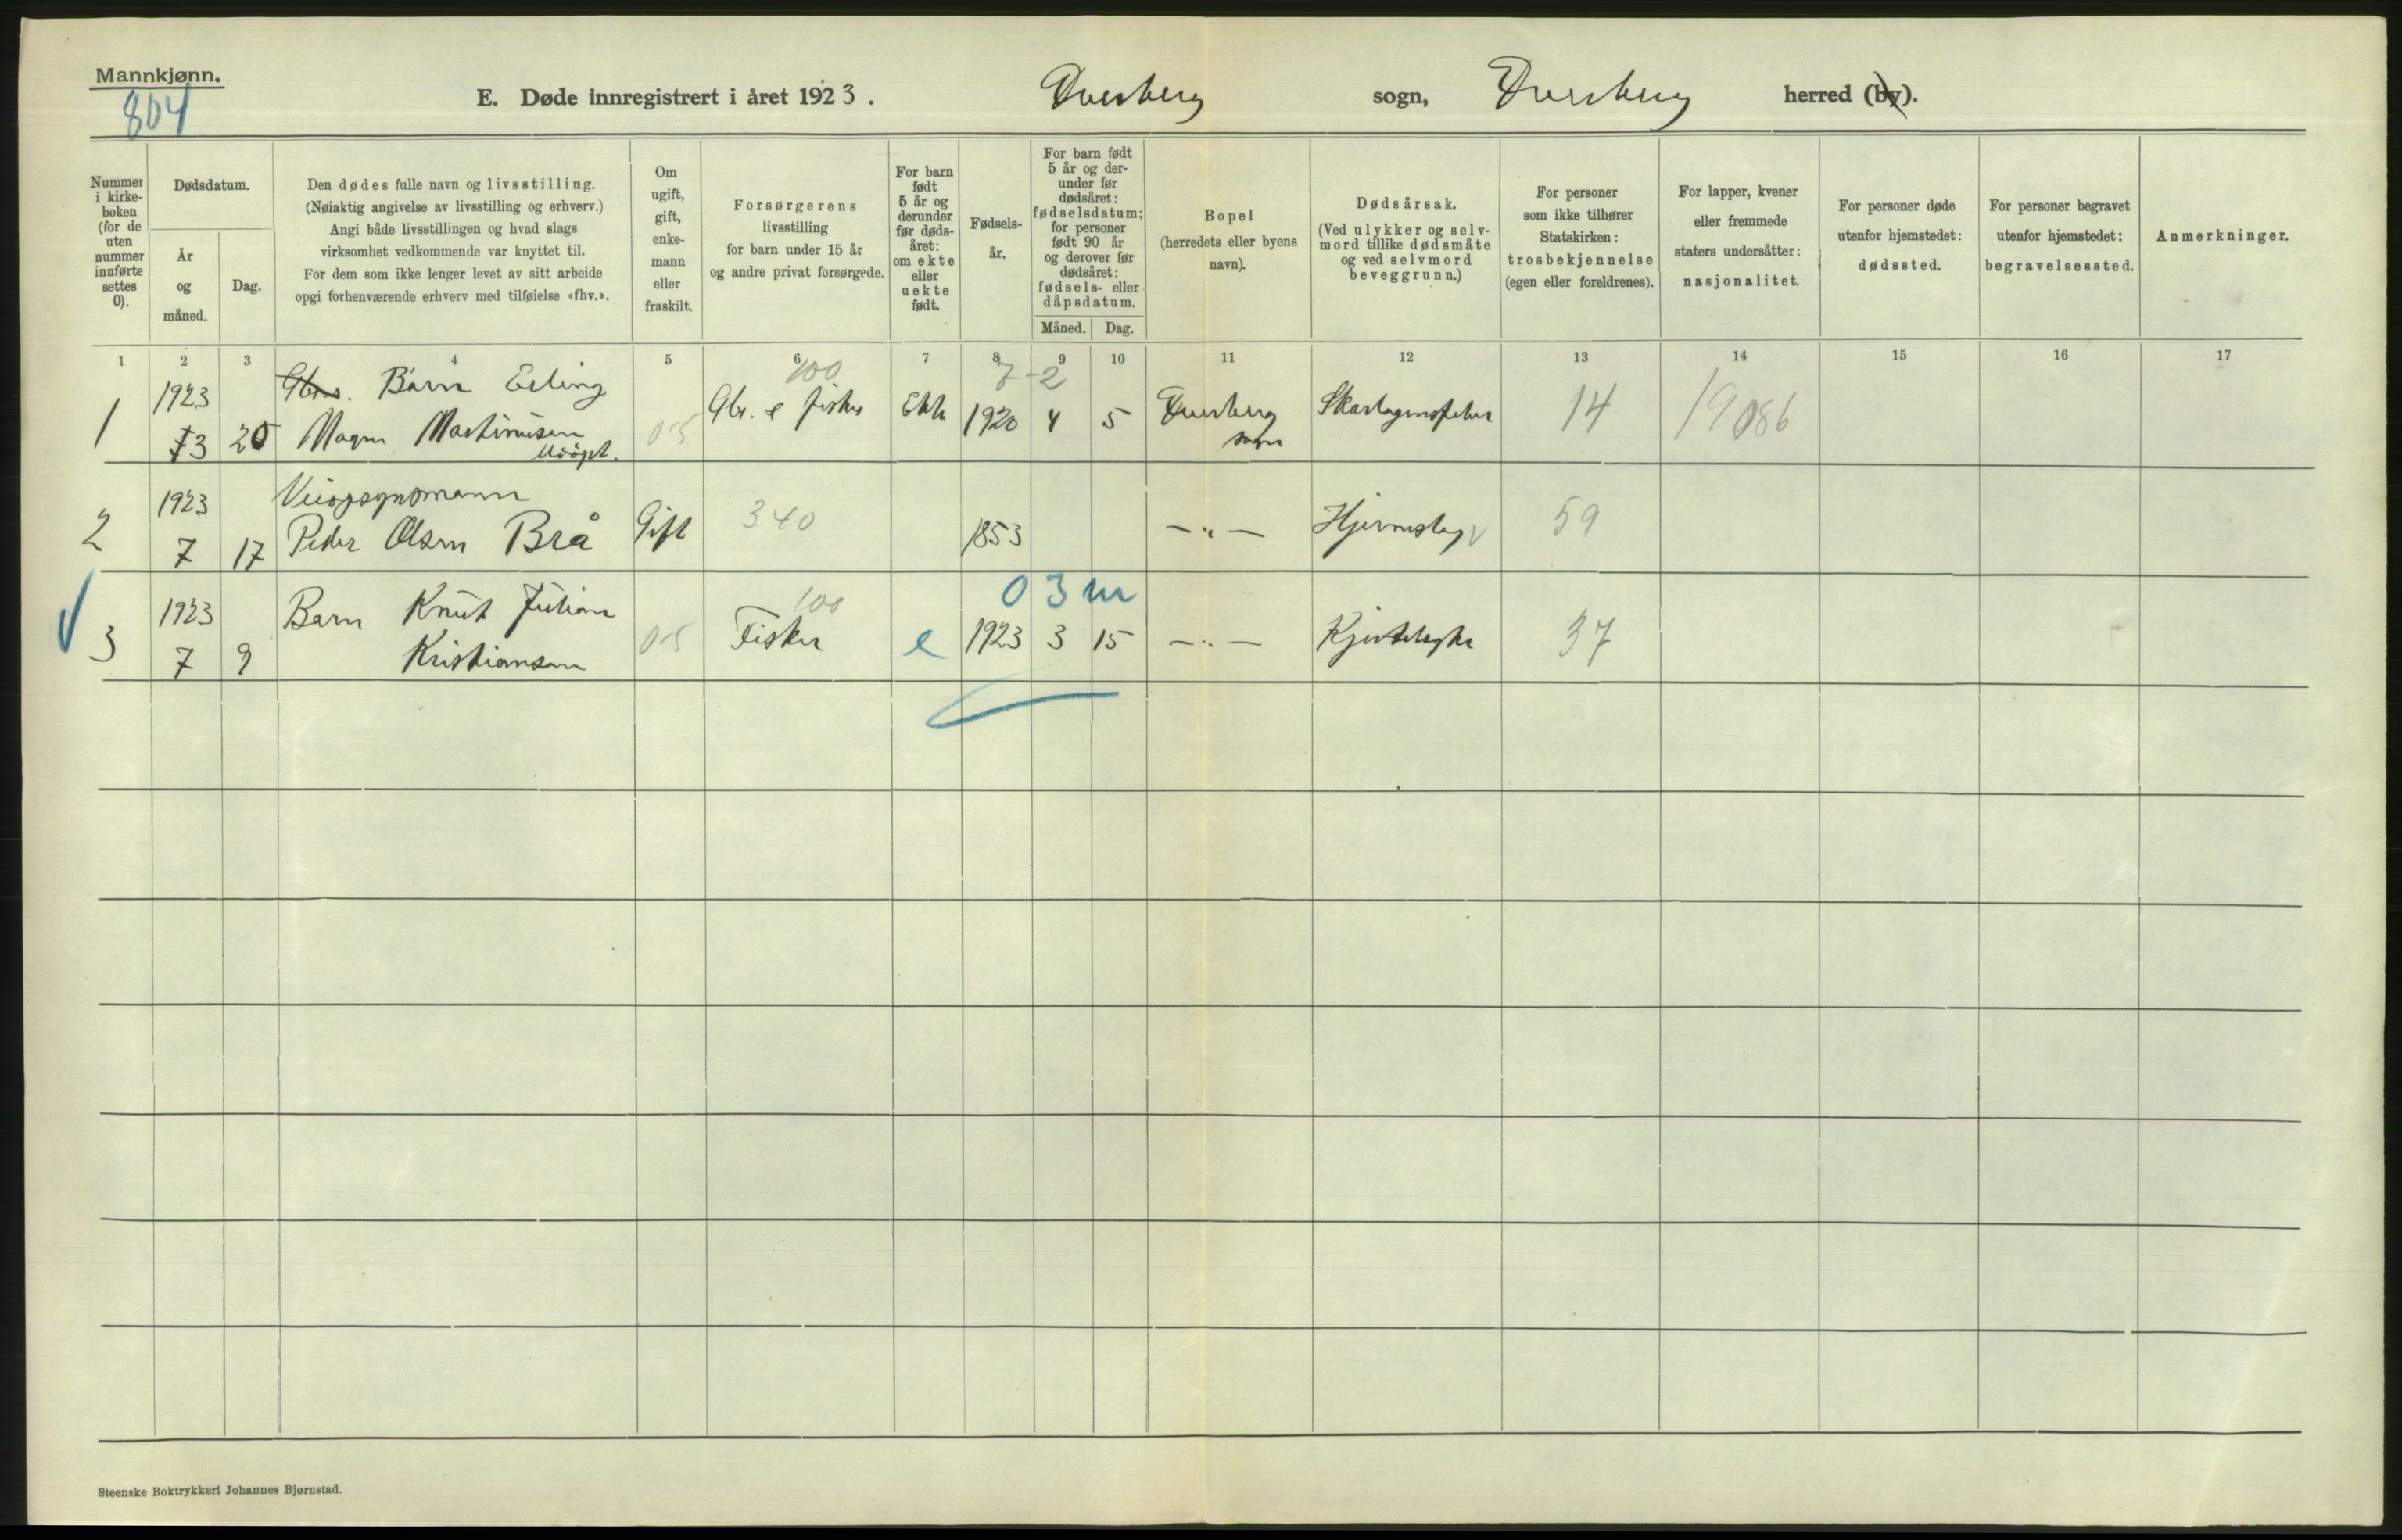 Mannkjønn.
804
E. Døde innregistrert i året 1923.
Dverberg sogn, Dverberg herred (by).
Nummer i kirkeboken (for de uten nummer innførte settes 0).
Dødsdatum.
År og måned.
Dag.
Den dødes fulle navn og livsstilling.
(Nøiaktig angivelse av livsstilling og erhverv.)
Angi både livsstillingen og hvad slags
virksomhet vedkommende var knyttet til.
For dem som ikke lenger levet av sitt arbeide
opgi forhenværende erhverv med tilføielse «fhv.».
Om ugift, gift, enkemann eller fraskilt.
Forsørgerens
livsstilling
for barn under 15 år
og andre privat forsørgede.
For barn født 5 år og derunder før dødsåret: om ekte eller uekte født.
Fødselsår.
For barn født 5 år og derunder før dødsåret: fødselsdatum; for personer født 90 år og derover før dødsåret: fødsels- eller dåpsdatum.
Måned.
Dag.
Bopel
(herredets eller byens
navn).
Dødsårsak.
(Ved ulykker og selvmord tillike dødsmåte og ved selvmord beveggrunn.)
For personer
som ikke tilhører
Statskirken:
trosbekjennelse
(egen eller foreldrenes).
For lapper, kvener
eller fremmede
staters undersåtter:
nasjonalitet.
For personer døde
utenfor hjemstedet:
dødssted.
For personer begravet
utenfor hjemstedet:
begravelsessted.
Anmerkninger.
1 2 3 4 5 6 7 8 9 10 11 12 13 14 15 16 17
100 7-2
1923 Gbrs. Barn Erling
1 3 20 Magnr Martinussen 0-5 Gbr. & fisker Ekte 1920 4 5 Dverberg sogn Skarlagensfeber 14 19086
1923 Veiopsynsmann
2 7 17 Peder Olsen Brå Gift 340 1853 —"— Hjerneslag 59
100 0 3 m
1923 Barn Knut Julian
3 7 9 Kristiansen 0-5 Fisker e 1923 3 15 —"— 37
Steenske Boktrykkeri Johannes Bjørnstad.